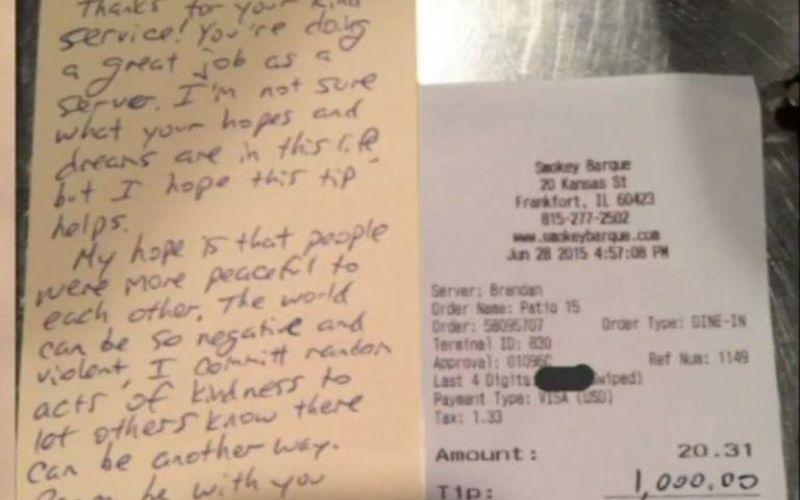 Thanks for your kind
service! You're doing
a great job as a
server. I'm not sure
what your hopes and
dreams are in this life,
but I hope this tip
helps.
My hope is that people
were more peaceful to
each other. The world
can be so negative and
violent, I committ random
acts of kindness to
let others know there
can be another way.
be with you
Smokey Barque
20 Kansas St
Frankfort, IL 60423
815-277-2502
www.smokeybarque.com
Jun 28 2015 4:57:08 PM
Server: Brendan
Order Name: Patio 15
Order: 58095707 Order Type: DINE-IN
Terminal ID: 830
Approval: 01096C Ref Num: 1149
Last 4 Digits wiped)
Payment Type: VISA (USD)
Tax: 1.33
Amount: 20.31
Tip: 1,000.00